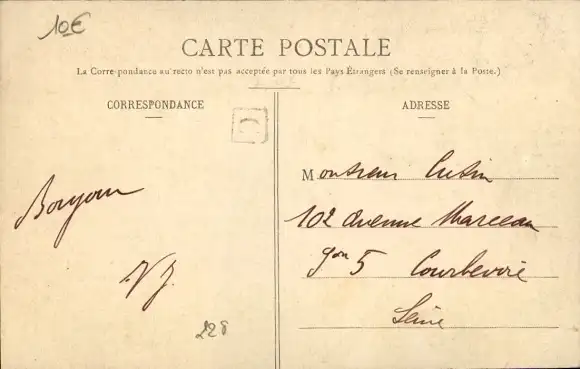 10€
CARTE POSTALE
La Correspondance au recto n'est pas acceptée par tous les Pays Étrangers (Se renseigner à la Poste.)
CORRESPONDANCE
ADRESSE
C
Bonjour
Monsieur
102 Avenue Marceau
5 Courbevoie
Seine
228